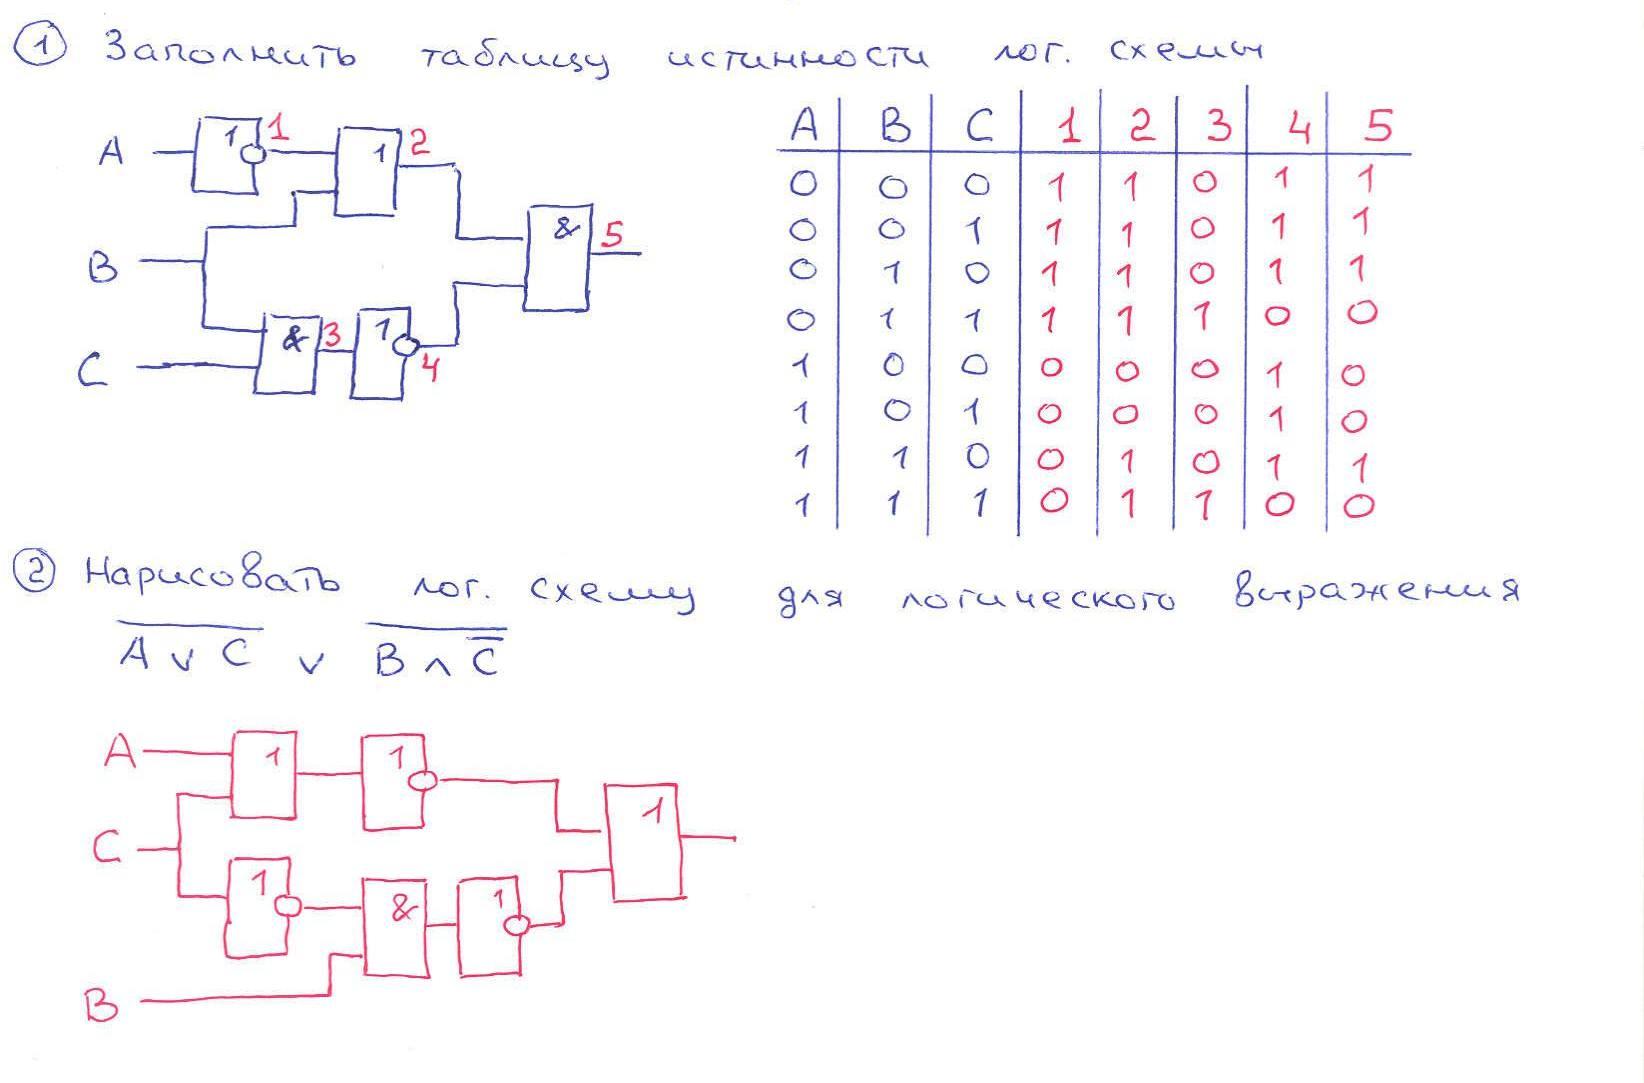 ① Заполнить таблицу истинности лог. схемы
A 1 1 1 2
B & 5
C & 3 1 4
A B C 1 2 3 4 5
0 0 0 1 1 0 1 1
0 0 1 1 1 0 1 1
0 1 0 1 1 0 1 1
0 1 1 1 1 1 0 0
1 0 0 0 0 0 1 0
1 0 1 0 0 0 1 0
1 1 0 0 1 0 1 1
1 1 1 0 1 1 0 0
② Нарисовать лог. схему для логического выражения
A̅ ̅v̅ ̅C̅ v B̅ ̅∧̅ ̅C̅̅
A 1 1
C 1
1 & 1
B